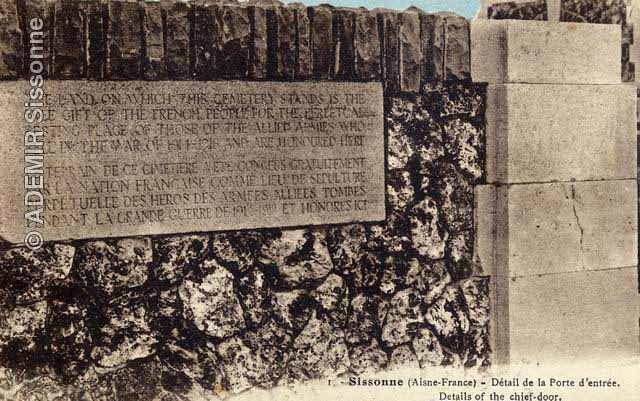 LAND ON WHICH THIS CEMETERY STANDS IS THE
GIFT OF THE FRENCH PEOPLE FOR THE PERPETUAL
PLACE OF THOSE OF THE ALLIED ARMIES WHO
IN THE WAR OF 1914-1918 AND ARE HONOURED HERE
TERRAIN DE CE CIMETIERE A ETE CONCEDE GRATUITEMENT
LA NATION FRANCAISE COMME LIEU DE SEPULTURE
PERPETUELLE DES HEROS DES ARMEES ALLIEES TOMBES
PENDANT LA GRANDE GUERRE DE 1914-1918 ET HONORES ICI
© ADEMIR Sissonne
1. - Sissonne (Aisne-France) - Détail de la Porte d'entrée.
Details of the chief-door.